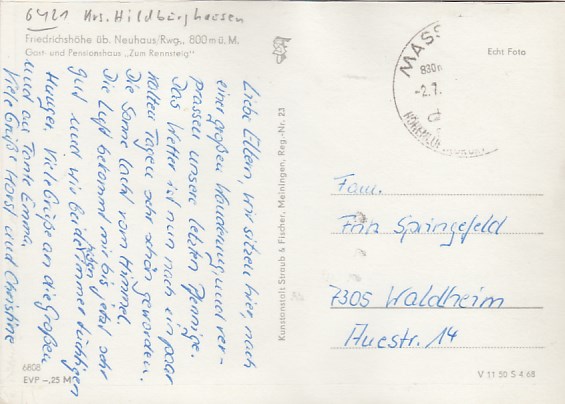 6421 Krs. Hildburghausen
Friedrichshöhe üb. Neuhaus/Rwg., 800 m ü. M.
Gast- und Pensionshaus „Zum Rennsteig"
Liebe Eltern, wir sitzen hier nach
einer großen Wanderung und ver-
prassen unsere letzten Pfennige.
Das Wetter ist nun nach ein paar
kalten Tagen sehr schön geworden.
Die Sonne lacht vom Himmel.
Die Luft bekommt mir bis jetzt sehr
gut und wir beide haben immer tüchtigen
Hunger. Viele Grüße an die Großen
und an Tante Emma.
Viele Grüße Horst und Christine
6808
EVP -,25 M
Kunstanstalt Straub & Fischer, Meiningen, Reg.-Nr. 23
Echt Foto
MASS
830m
-2.7.
Fam.
Springefeld
7305 Waldheim
Auestr. 14
V 11 50 S 4.68